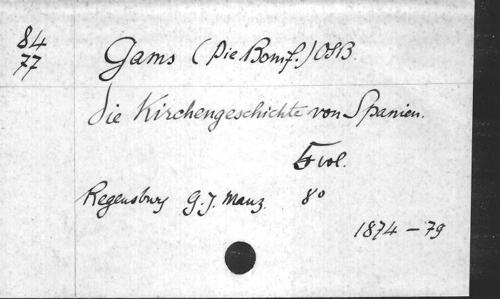 84
77
Gams (Pie Bonif.) OSB.
Die Kirchengeschichte von Spanien.
5 vol.
Regensburg G. J. Manz. 8°
1874 – 79